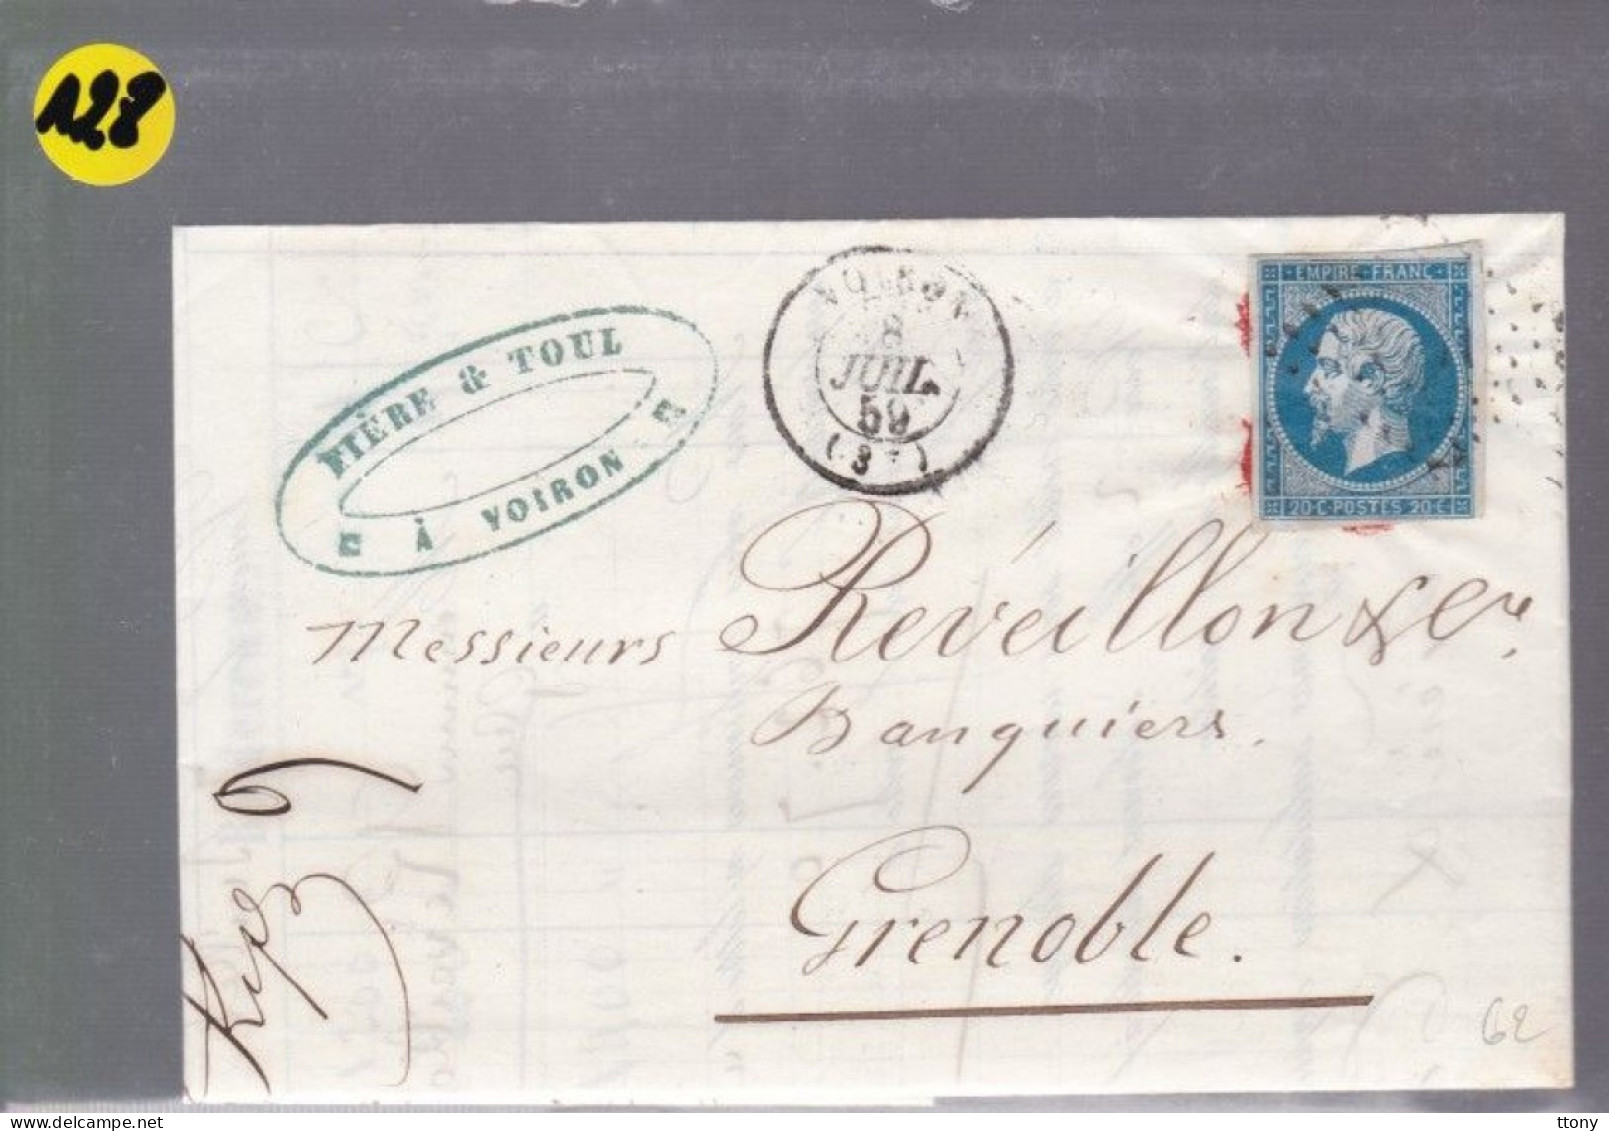 128
FIÈRE & TOUL
À VOIRON
VOIRON
8
JUIL.
59
(37)
EMPIRE FRANC
20·C·POSTES 20·C
Messieurs Réveillon & Cie
Banquiers.
Grenoble.
62
ttony